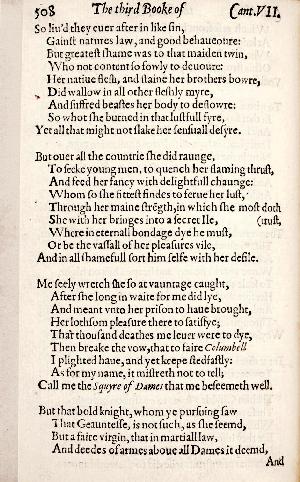 508 The third Booke of Cant. VII.
So liu'd they euer after in like sin,
Gainst natures law, and good behaueoure:
But greatest shame was to that maiden twin,
Who not content so fowly to deuoure
Her natiue flesh, and staine her brothers bowre,
Did wallow in all other fleshly myre,
And suffred beastes her body to deflowre:
So whot she burned in that lustfull fyre,
Yet all that might not slake her sensuall desyre.
But ouer all the countrie she did raunge,
To seeke young men, to quench her flaming thrust,
And feed her fancy with delightfull chaunge:
Whom so she fittest findes to serue her lust,
Through her maine strẽgth, in which she most doth
She with her bringes into a secret Ile, (trust,
Where in eternall bondage dye he must,
Or be the vassall of her pleasures vile,
And in all shamefull sort him selfe with her defile.
Me seely wretch she so at vauntage caught,
After she long in waite for me did lye,
And meant vnto her prison to haue brought,
Her lothsom pleasure there to satisfye;
That thousand deathes me leuer were to dye,
Then breake the vow, that to faire Columbell
I plighted haue, and yet keepe stedfastly:
As for my name, it mistreth not to tell;
Call me the Squyre of Dames that me beseemeth well.
But that bold knight, whom ye pursuing saw
That Geauntesse, is not such, as she seemd,
But a faire virgin, that in martiall law,
And deedes of armes aboue all Dames it deemd,
And